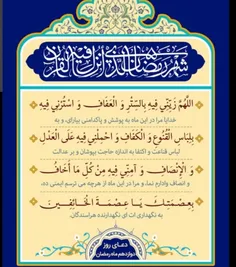 شهر رمضان الذی انزل فیه القرآن
اللّهُمَّ زَیِّنِّی فِیهِ بِالسِّتْرِ وَ الْعَفَافِ وَ اسْتُرْنِی فِیهِ
خدایا مرا در این ماه به پوشش و پاکدامنی بیارای، و به
بِلِبَاسِ الْقُنُوعِ وَ الْکَفَافِ وَ احْمِلْنِی فِیهِ عَلَى الْعَدْلِ
لباس قناعت و اکتفا به اندازه حاجت بپوشان و بر عدالت
وَ الْإِنْصَافِ وَ آمِنِّی فِیهِ مِنْ کُلِّ مَا أَخَافُ
و انصاف وادارم نما، و مرا در این ماه از هرچه می ترسم ایمنی ده،
بِعِصْمَتِکَ یَا عِصْمَةَ الْخَائِفِینَ
به نگهداری ات ای نگهدارنده هراسندگان.
دعای روز
دوازدهم ماه رمضان